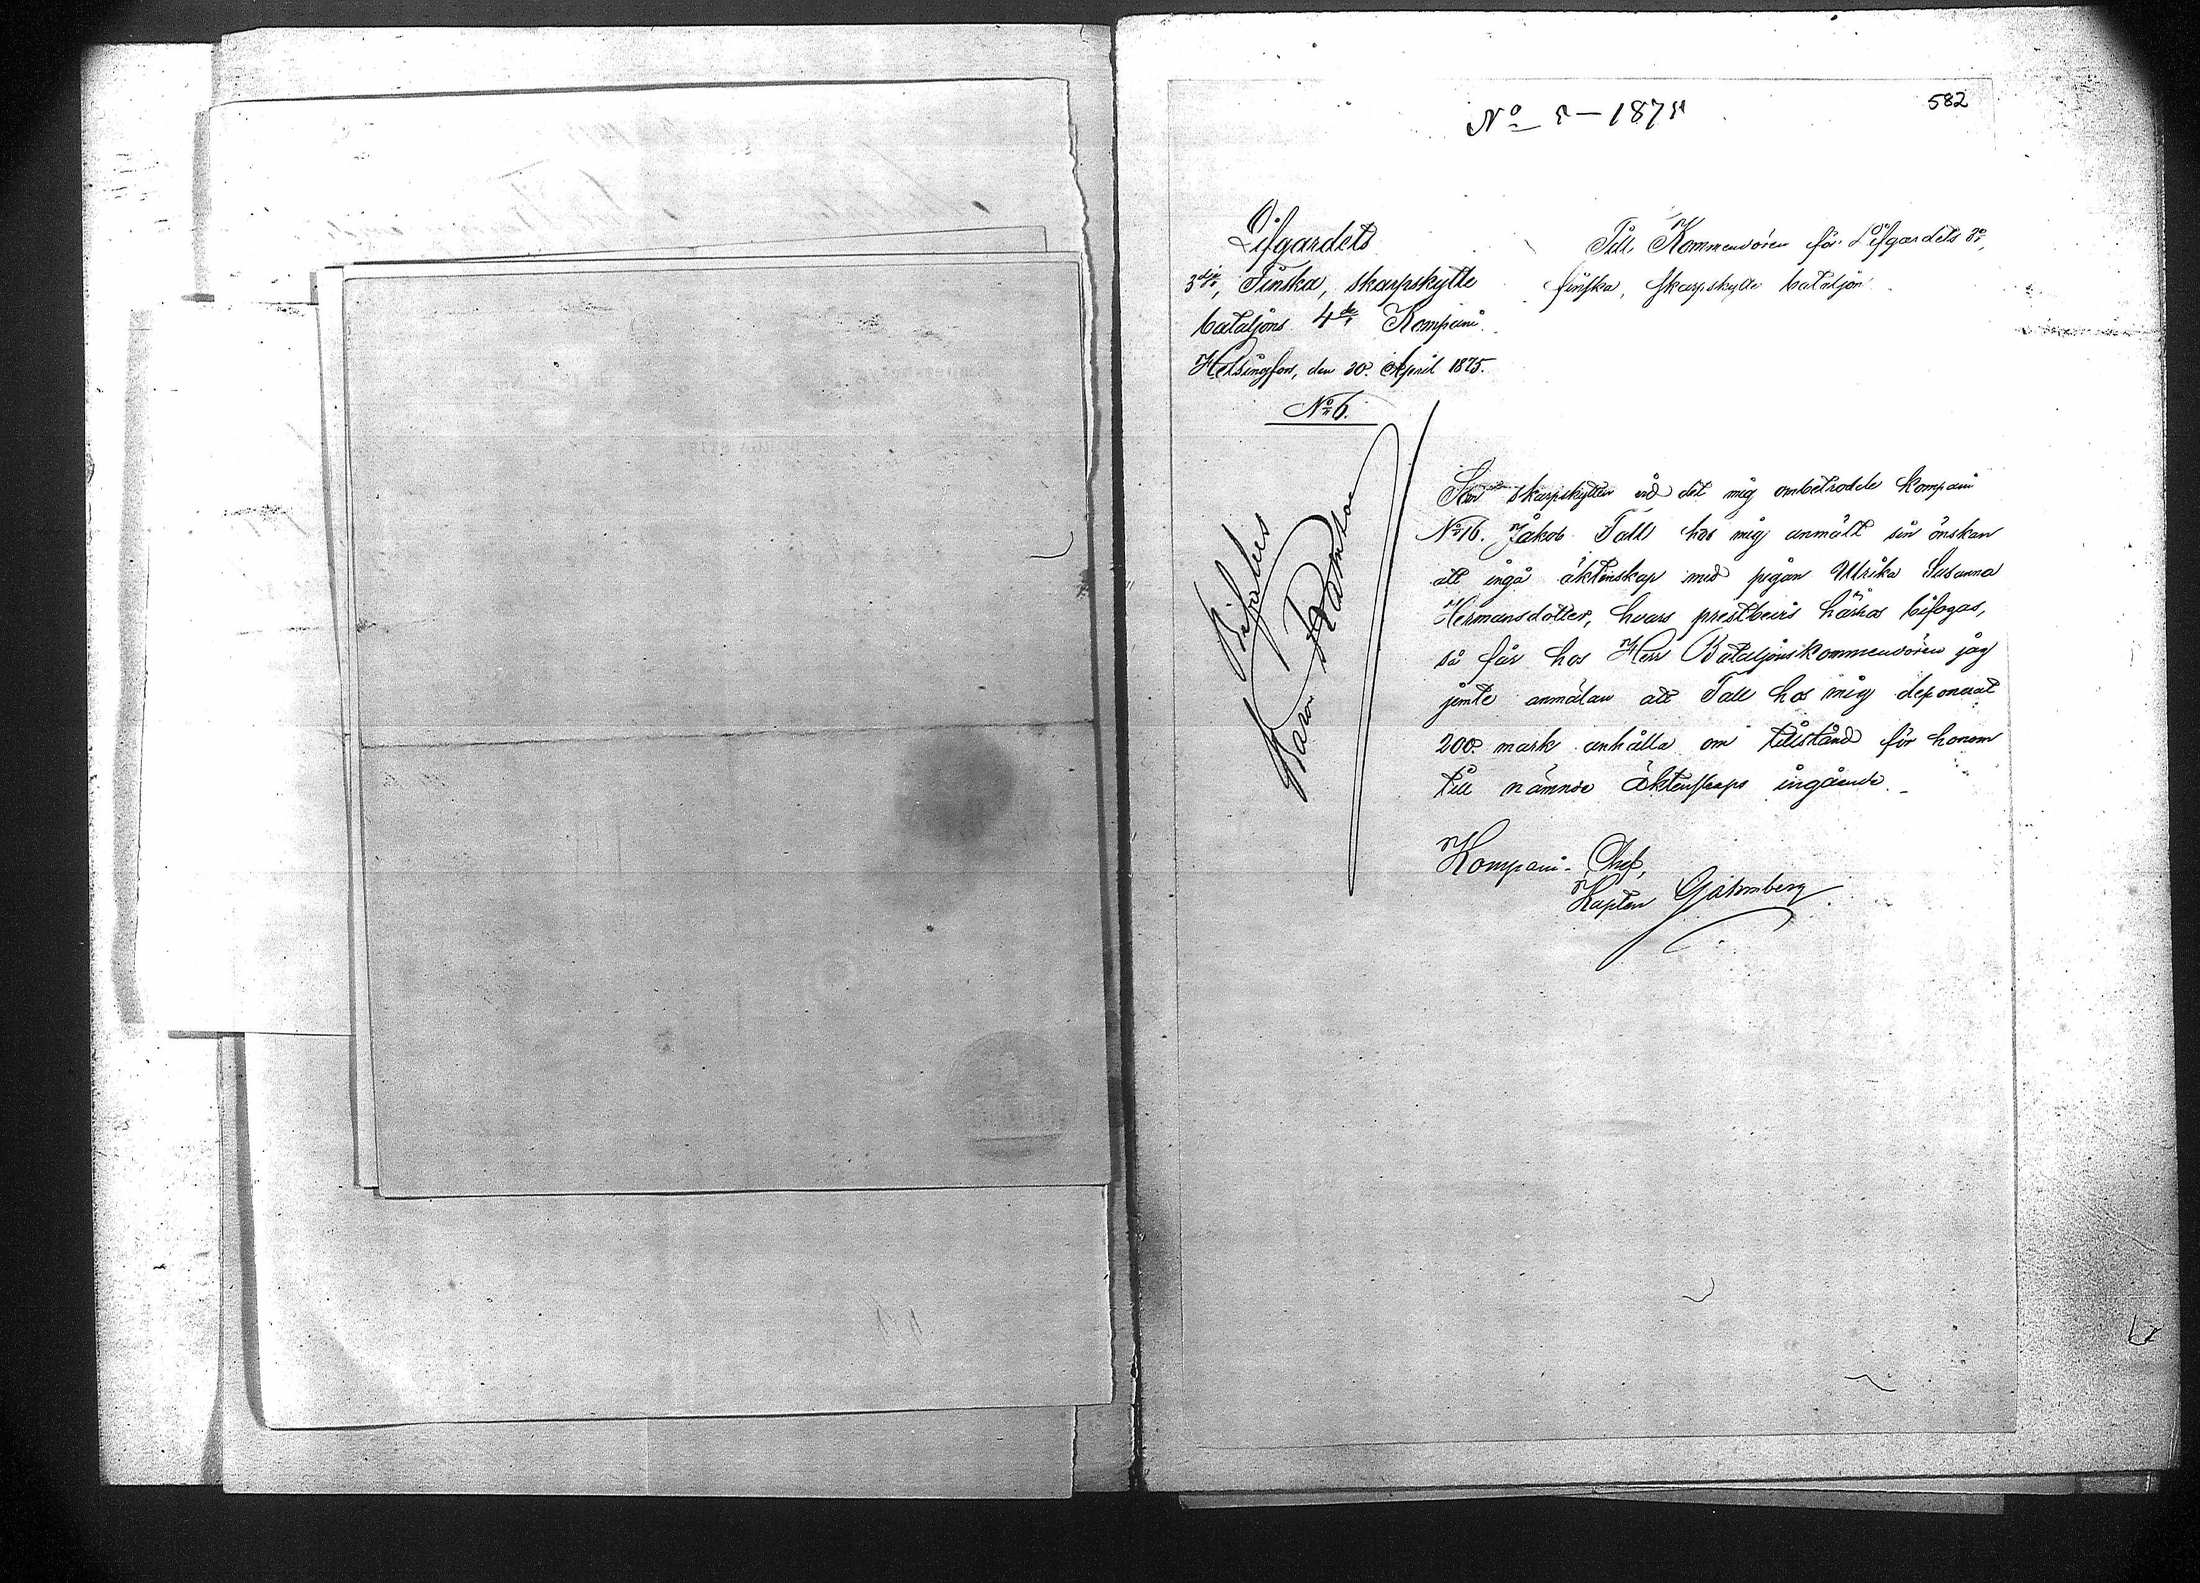 582
Lifgardets
3dje, Finska, skarpskytte
bataljons 4de Kompani.
Helsingfors, den 20. April 1875.
No 6.
Till Kommendören för Lifgardets 3e,
finska, skarpskytte bataljon
Bifalles
Baron Ramsay
Som skarpskytten vid det mig ombetrodde kompani
No 16. Jakob Tall hos mig anmält sin önskan
att ingå äktenskap med pigan Ulrika Susanna
Hermansdotter, hvars prestbevis härhos bifogas,
så får hos Herr Bataljonskommendören jag
jemte anmälan att Tall hos mig deponerat
200 mark anhålla om tillstånd för honom
till nämnde äktenskaps ingående.
Kompani-Chef,
Kapten